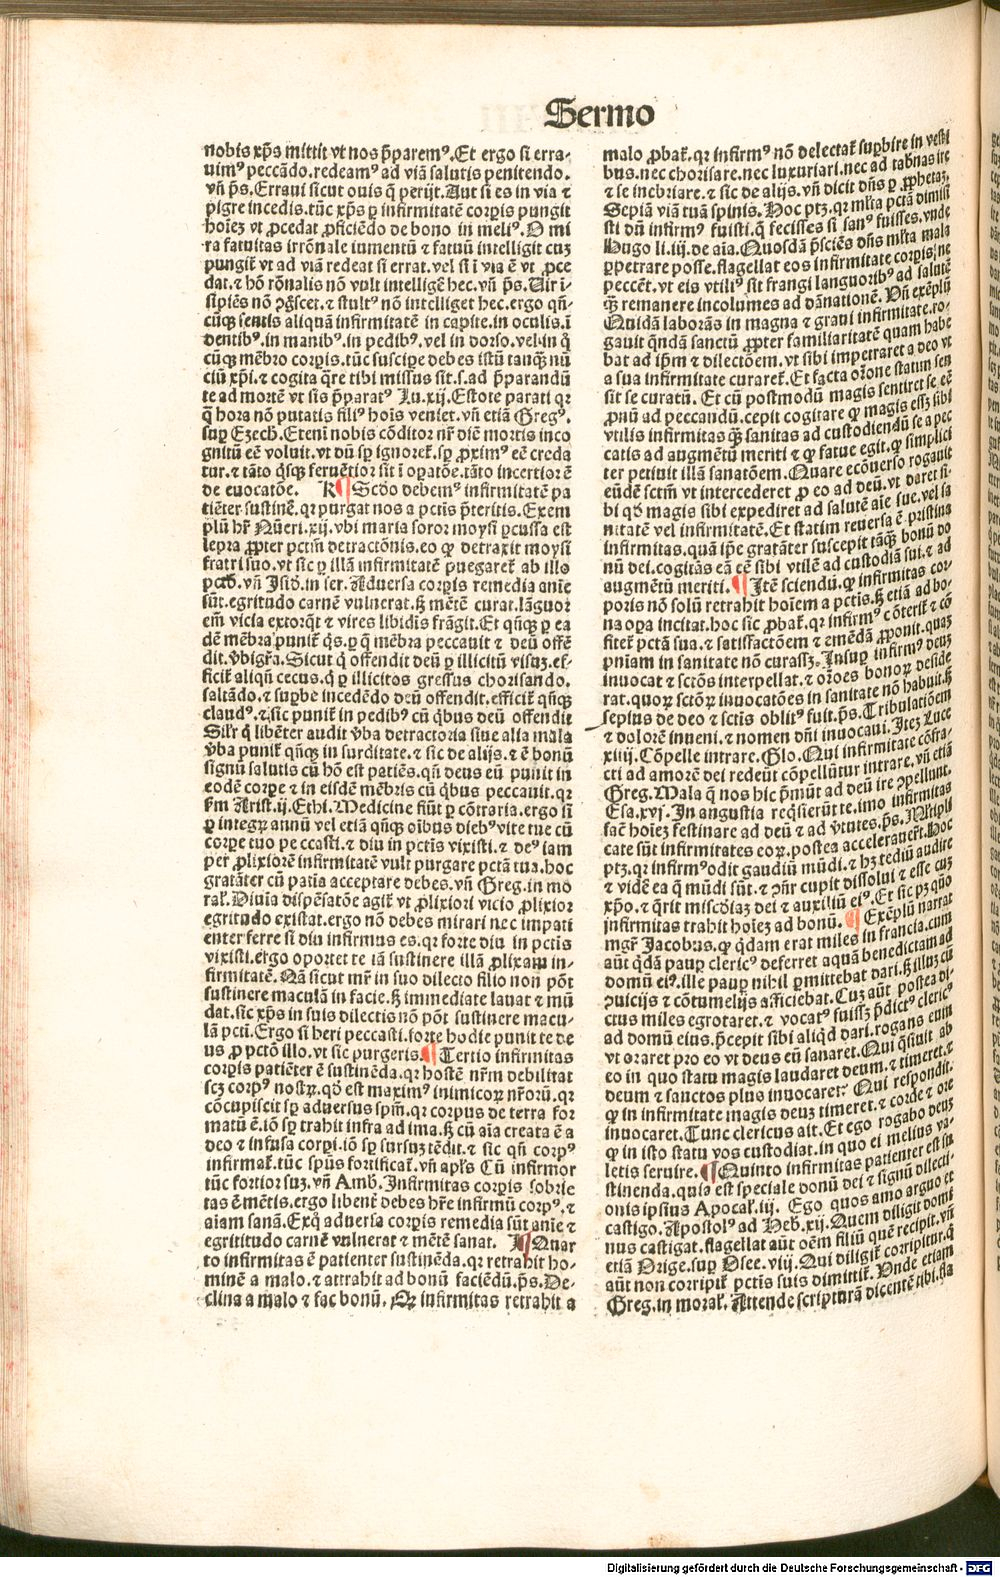 Sermo
nobis xp̄s mittit vt nos p̄paremꝰ. Et ergo si erra-
uimꝰ peccādo. redeamꝰ ad viā salutis penitendo.
vn̄ p̄s. Erraui sicut ouis q̄ perijt. Aut si es in via ⁊
pigre incedis. tūc xp̄s ꝑ infirmitatē corꝑis pungit
hoīeꝫ vt ꝓcedat ꝓficiēdo de bono in meliꝰ. O mi
ra fatuitas irrōnale iumentū ⁊ fatuū intelligit cuꝫ
pungiť vt ad viā redeat si errat. vel si ī via ē vt ꝓce
dat. ⁊ hō rōnalis nō vult intelligē hec. vn̄ p̄s. Uir ī-
sipiēs nō ꝯgscet. ⁊ stultꝰ nō intelliget hec. ergo qn̄-
cūqꝫ sentis aliquā infirmitatē in capite. in oculis. ī
dentibꝰ. in manibꝰ. in pedibꝰ. vel in dorso. vel. in q̄
cūqꝫ mēbro corꝑis. tūc suscipe debes istū tanqꝫ nū
ciū xp̄i. ⁊ cogita q̄re tibi missus sit. s. ad p̄parandū
te ad mortē vt sis p̄paratꝰ Lu. xij. Estote parati qꝛ
q̄ hora nō putatis filiꝰ hoīs veniet. vn̄ etiā Gregꝰ.
suꝑ Ezech. Etenī nobis cōditor nr̄ diē mortis inco
gnitū eē voluit. vt dū sꝑ ignoreť. sꝑ ꝓximꝰ eē creda
tur. ⁊ tāto q̄sqꝫ feruētior sit ī oꝑatōe. tāto incertior ē
de euocatōe. K ¶ Scd̄o debemꝰ infirmitatē pa
tiēter sustinē. qꝛ purgat nos a pctīs p̄teritis. Exem
plū hr̄ Nūeri. xij. vbi maria soror moysi ꝑcussa est
lepra ꝓpter pctm̄ detractōnis. eo ꝙ detraxit moysi
fratri suo. vt sic ꝑ illā infirmitatē puegareť ab illo
pctō. vn̄ Isid. in ser. Aduersa corꝑis remedia anīe
sūt. egritudo carnē vulnerat. sꝫ mētē curat. lāguor
em̄ vicia extorq̄t ⁊ vires libidis frāgit. Et qn̄qꝫ ꝑ ea
dē mēbra puniť q̄s. ꝑ q̄ mēbra peccauit ⁊ deū offē
dit. v̄bigr̄a. Sicut q̄ offendit deū ꝑ illicitū visuꝫ. ef-
ficiť aliqn̄ cecus. q̄ ꝑ illicitos gressus chorisando.
saltādo. ⁊ suꝑbe incedēdo deū offendit. efficiť qn̄qꝫ
claudꝰ. ⁊. sic puniť in pedibꝰ cū q̄bus deū offendit
Sil̄r q̄ libēter audit v̄ba detractoria siue alia mala
v̄ba puniť qn̄qꝫ in surditate. ⁊ sic de alijs. ⁊ ē bonū
signū salutis cū hō est patiēs. qn̄ deus eū punit in
eodē corꝑe ⁊ in eisdē mēbris cū q̄bus peccauit. qꝛ
ẜm Arist. ij. Ethi. Medicine fiūt ꝑ cōtraria. ergo si
ꝑ integrꝫ annū vel etiā qn̄qꝫ oībus diebꝰ vite tue cū
corꝑe tuo pe ccasti. ⁊ diu in pctīs vixisti. ⁊ deꝰ iam
ꝑ ꝓlixiorē infirmitatē vult purgare pctā tua. hoc
gratāter cū patīa acceptare debes. vn̄ Greg. in mo
raľ. Diuīa dispēsatōe agiť vt ꝓlixiori vicio ꝓlixior
egritudo existat. ergo nō debes mirari nec impati
enter ferre si diu infirmus es. qꝛ forte diu in pctīs
vixisti. ergo oportet te iā sustinere illā ꝓlixam in-
firmitatē. Nā sicut mr̄ in suo dilecto filio non pōt
sustinere maculā in facie. sꝫ immediate lauat ⁊ mū
dat. sic xp̄s in suis dilectis nō pōt sustinere macu-
lā pctī. Ergo si heri peccasti. forte hodie punit te de
us ꝓ pctō illo. vt sic purgeris. ¶ Tertio infirmitas
corꝑis patiēter ē sustinēda. qꝛ hostē nr̄m debilitat
scꝫ corpꝰ nostrꝫ. qd̄ est maximꝰ inimicoꝝ nr̄oꝝ. qꝛ
cōcupiscit sꝑ aduersus spm̄. qꝛ corpus de terra for
matū ē. iō sꝑ trahit infra ad ima. sꝫ cū aīa creata ē a
deo ⁊ infusa corpi. iō sꝑ sursuꝫ tēdit. ⁊ sic qn̄ corpꝰ
infirmať. tūc spūs fortificať. vn̄ apl̄s Cū infirmor
tūc fortior suꝫ. vn̄ Amb. Infirmitas corꝑis sobrie
tas ē mētis. ergo libent̄ debes hr̄e infirmū corpꝰ. ⁊
aīam sanā. Exq̄ aduersa corꝑis remedia sūt anīe ⁊
egrititudo carnē vulnerat ⁊ mētē sanat. ¶ Quar
to infirmitas ē patienter sustinēda. qꝛ retrahit ho-
minē a malo. ⁊ attrahit ad bonū faciēdū. p̄s. De-
clina a malo ⁊ fac bonū. Qꝫ infirmitas retrahit a
malo ꝓbať. qꝛ infirmꝰ nō delectať suꝑbire in vesti
bus. nec chorisare. nec luxuriari. nec ad tabnas ire
⁊ se inebriare. ⁊ sic de alijs. vn̄ dicit dn̄s ꝑ ꝓphetaꝫ.
Sepiā viā tuā spinis. Hoc ptꝫ. qꝛ ml̄ta pctā dimisi
sti dū infirmꝰ fuisti. q̄ fecisses si sanꝰ fuisses. vnde
Hugo li. iij. de aīa. Quosdā p̄sciēs dn̄s ml̄ta mala
ꝑpetrare posse. flagellat eos infirmitate corꝑis. ne
peccēt. vt eis vtiliꝰ sit frangi languoribꝰ ad salutē
qꝫ remanere incolumes ad dānationē. Vn̄ exēplū
Quidā laborās in magna ⁊ graui infirmitate. ro-
gauit q̄ndā sanctū ꝓpter familiaritatē quam habe
bat ad ip̄m ⁊ dilectōem. vt sibi impetraret a deo vt
a sua infirmitate curareť. Et facta orōne statum sen
sit se curatū. Et cū postmodū magis sentiret se eē
ꝓnū ad peccandū. cepit cogitare ꝙ magis esset sibi
vtilis infirmitas qꝫ sanitas ad custodiendū se a pec
catis ad augmētū meriti ⁊ ꝙ fatue egit. ꝙ simplici
ter petiuit illā sanatōem. Quare ecōuerso rogauit
eūdē sctm̄ vt intercederet ꝓ eo ad deū. vt daret si-
bi qd̄ magis sibi expediret ad salutē aīe sue. vel sa
nitatē vel infirmitatē. Et statim reuersa ē pristina
infirmitas. quā ip̄e gratāter suscepit tāqꝫ bonū do
nū dei. cogitās eā eē sibi vtilē ad custodiā sui. ⁊ ad
augmētū meriti. ¶ Itē sciendū. ꝙ infirmitas cor-
poris nō solū retrahit hoīem a pctīs. sꝫ etiā ad bo-
na oꝑa incitat. hoc sic ꝓbať. qꝛ infirmꝰ cōteriť ⁊ cō
fiteť pctā sua. ⁊ satisfactōem ⁊ emēdā ꝓponit. quaꝫ
pn̄iam in sanitate nō curasset. Insuꝑ infirmꝰ deuꝫ
inuocat ⁊ sctōs interpellat. ⁊ orōes bonoꝝ deside
rat. quoꝝ sctōꝝ inuocatōes in sanitate nō habuit. sꝫ
sepius de deo ⁊ sctīs oblitꝰ fuit. p̄s. Tribulatiōem
⁊ dolorē inueni. ⁊ nomen dn̄i inuocaui. Iteꝫ Luce
xiiij. Cōpelle intrare. Glo. Qui infirmitate cōfra-
cti ad amorē dei redeūt cōpellūtur intrare. vn̄ etiā
Greg. Mala q̄ nos hic p̄mūt ad deū ire ꝯpellunt.
Esa. xvj. In angustia reqsierūt te. imo infirmitas
facē hoīeꝫ festinare ad deū ⁊ ad v̄tutes. p̄s. Ml̄tipli
cate sūt infirmitates eoꝝ. postea accelerauerūt. Hoc
ptꝫ. qꝛ infirmꝰ odit gaudiū mūdi. ⁊ hꝫ tediū audire
⁊ vidē ea q̄ mūdi sūt. ⁊ ꝯn̄r cupit dissolui ⁊ esse cuꝫ
xp̄o. ⁊ q̄rit miscd̄iaꝫ dei ⁊ auxiliū eiꝰ. Et sic pꝫ quo
infirmitas trahit hoīeꝫ ad bonū. ¶ Exēplū narrat
mgr̄ Jacobus. ꝙ q̄dam erat miles in francia. cum
aūt q̄dā paup clericꝰ deferret aquā benedictam ad
domū eiꝰ. ille paup nihil ꝑmittebat dari. sꝫ illuꝫ cū
ꝯuicijs ⁊ cōtumelijs afficiebat. Cuꝫ aūt postea di-
ctus miles egrotaret. ⁊ vocatꝰ fuisset p̄dictꝰ clericꝰ
ad domū eius. p̄cepit sibi aliqd dari. rogans eum
vt oraret pro eo vt deus eū sanaret. Qui q̄siuit ab
eo in quo statu magis laudaret deum. ⁊ timeret. ⁊
deum ⁊ sanctos plus inuocaret. Qui respondit.
ꝙ in infirmitate magis deuꝫ timeret. ⁊ corde ⁊ ore
inuocaret. Tunc clericus ait. Et ego rogabo deuꝫ
ꝙ in isto statu vos custodiat. in quo ei melius va-
letis seruire. ¶ Quinto infirmitas patienter est su
stinenda. quia est speciale donū dei ⁊ signū dilecti-
onis ipsius Apocať. iij. Ego quos amo arguo et
castigo. Apostolꝰ ad Heb. xij. Quem diligit domi
nus castigat. flagellat aūt oēm filiū quē recipit. vn̄
etiā Orige. suꝑ Osee. viij. Qui diligiť corripitur. q̄
aūt non corripiť pctīs suis dimittiť. Vnde etiam
Greg. in moraľ. Attende scripturā dicentē tibi. fla
Digitalisierung gefördert durch die Deutsche Forschungsgemeinschaft - DFG